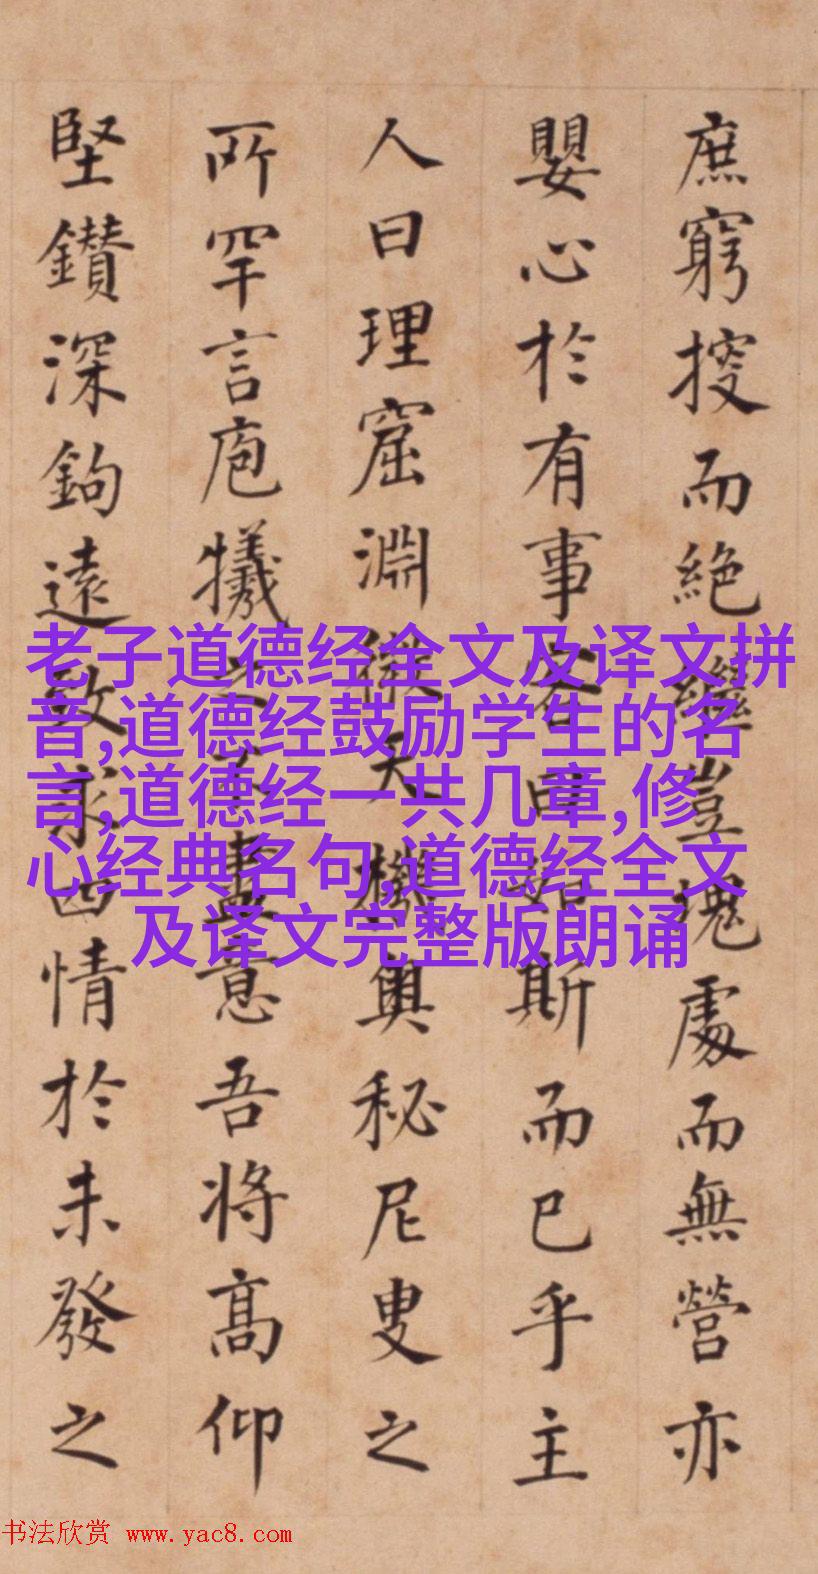 庶窮搜而絕繼豈塊處而無營亦
嬰心於有事客曰如斯而已乎主
人曰理窟淵微天機奧秘尼叟之
所罕言庖犧之不盡意吾將高仰
堅鑽深鉤遠致求四情於未發之
老子道德经全文及译文拼
音,道德经鼓励学生的名
言,道德经一共几章,修
心经典名句,道德经全文
及译文完整版朗诵
书法欣赏 www.yac8.com